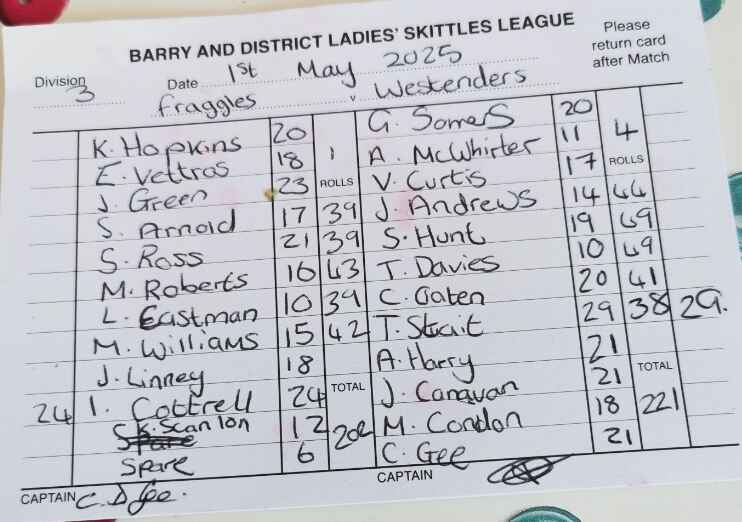 BARRY AND DISTRICT LADIES' SKITTLES LEAGUE
Please return card after Match
Division 3 Date 1st May 2025
Fraggles v Westenders
K. Hopkins 20 G. Somers 20
E. Vettras 18 1 A. McWhirter 11 4
J. Green 23 ROLLS V. Curtis 17 ROLLS
S. Arnold 17 39 J. Andrews 14 44
S. Ross 21 39 S. Hunt 19 49
M. Roberts 16 43 T. Davies 10 49
L. Eastman 10 39 C. Oaten 20 41
M. Williams 15 42 T. Strait 29 38 29.
J. Linney 18 A. Harry 21
24 I. Cottrell 24 TOTAL J. Canavan 21 TOTAL
K. Scanlon 12 202 M. Condon 18 221
Spare 6 C. Gee 21
CAPTAIN C. D Gee. CAPTAIN